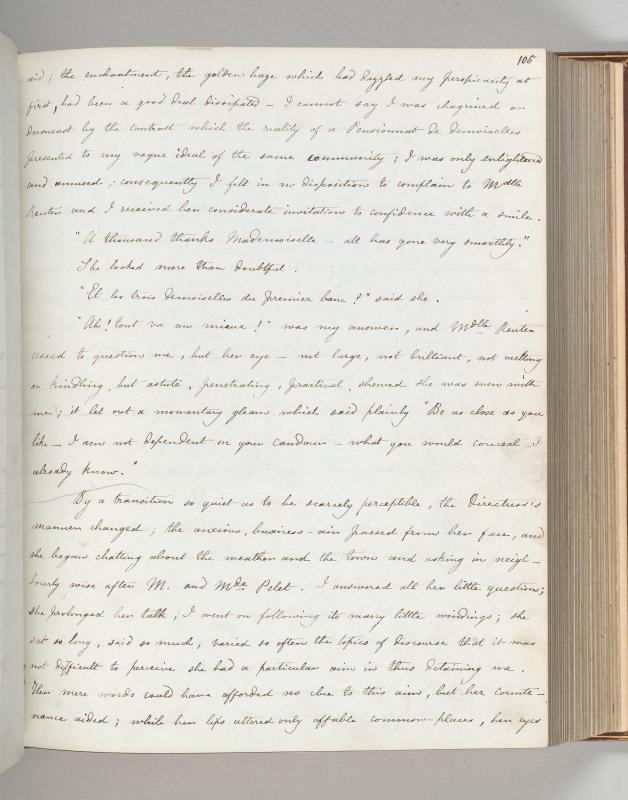 105
aid; the enchantment, the golden haze which had dazzled my perspicacity at
first, had been a good deal dissipated – I cannot say I was chagrined or
downcast by the contrast which the reality of a Pensionnat de demoiselles
presented to my vague ideal of the same community; I was only enlightened
and amused; consequently I felt in no disposition to complain to Mdlle
Reuter and I received her considerate invitation to confidence with a smile.
"A thousand thanks Mademoiselle – all has gone very smoothly."
She looked more than doubtful.
"Et les trois demoiselles du premier banc?" said she.
"Ah! tout va au mieux!" was my answer, and Mdlle Reuter
ceased to question me, but her eye – not large, not brilliant, not melting
or kindling, but astute, penetrating, practical, shewed she was even with
me; it let out a momentary gleam which said plainly "Be as close as you
like – I am not dependent on your candour – what you would conceal – I
already know."
By a transition so quiet as to be scarcely perceptible, the Directress's
manner changed; the anxious, business-air passed from her face, and
she began chatting about the weather and the town and asking in neigh-
bourly wise after M. and Mde Pelet. I answered all her little questions;
she prolonged her talk, I went on following its many little windings; she
sat so long, said so much, varied so often the topics of discourse that it was
not difficult to perceive she had a particular aim in thus detaining me.
Her mere words could have afforded no clue to this aim, but her counte-
nance aided; while her lips uttered only affable common-places, her eyes